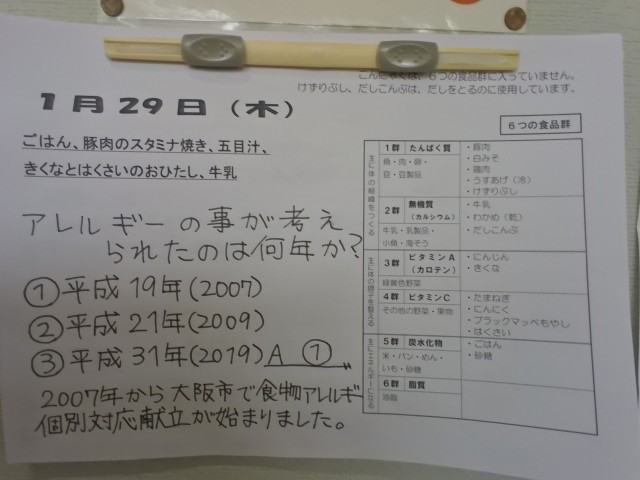 こんにゃくは、6つの食品群に入っていません。
けずりぶし、だしこんぶは、だしをとるのに使用しています。
1月29日(木)
ごはん、豚肉のスタミナ焼き、五目汁、
きくなとはくさいのおひたし、牛乳
アレルギーの事が考え
られたのは何年か?
①平成19年(2007)
②平成21年(2009)
③平成31年(2019) A ①
2007年から大阪市で食物アレルギー
個別対応献立が始まりました。
6つの食品群
主に体の組織をつくる
1群 たんぱく質
魚・肉・卵・
豆・豆製品
・豚肉
・白みそ
・鶏肉
・うすあげ(冷)
・けずりぶし
2群 無機質
(カルシウム)
牛乳・乳製品・
小魚・海そう
・牛乳
・わかめ(乾)
・だしこんぶ
主に体の調子を整える
3群 ビタミンA
(カロテン)
緑黄色野菜
・にんじん
・きくな
4群 ビタミンC
その他の野菜・果物
・たまねぎ
・にんにく
・ブラックマッペもやし
・はくさい
主にエネルギーになる
5群 炭水化物
米・パン・めん・
いも・砂糖
・ごはん
・砂糖
6群 脂質
油脂